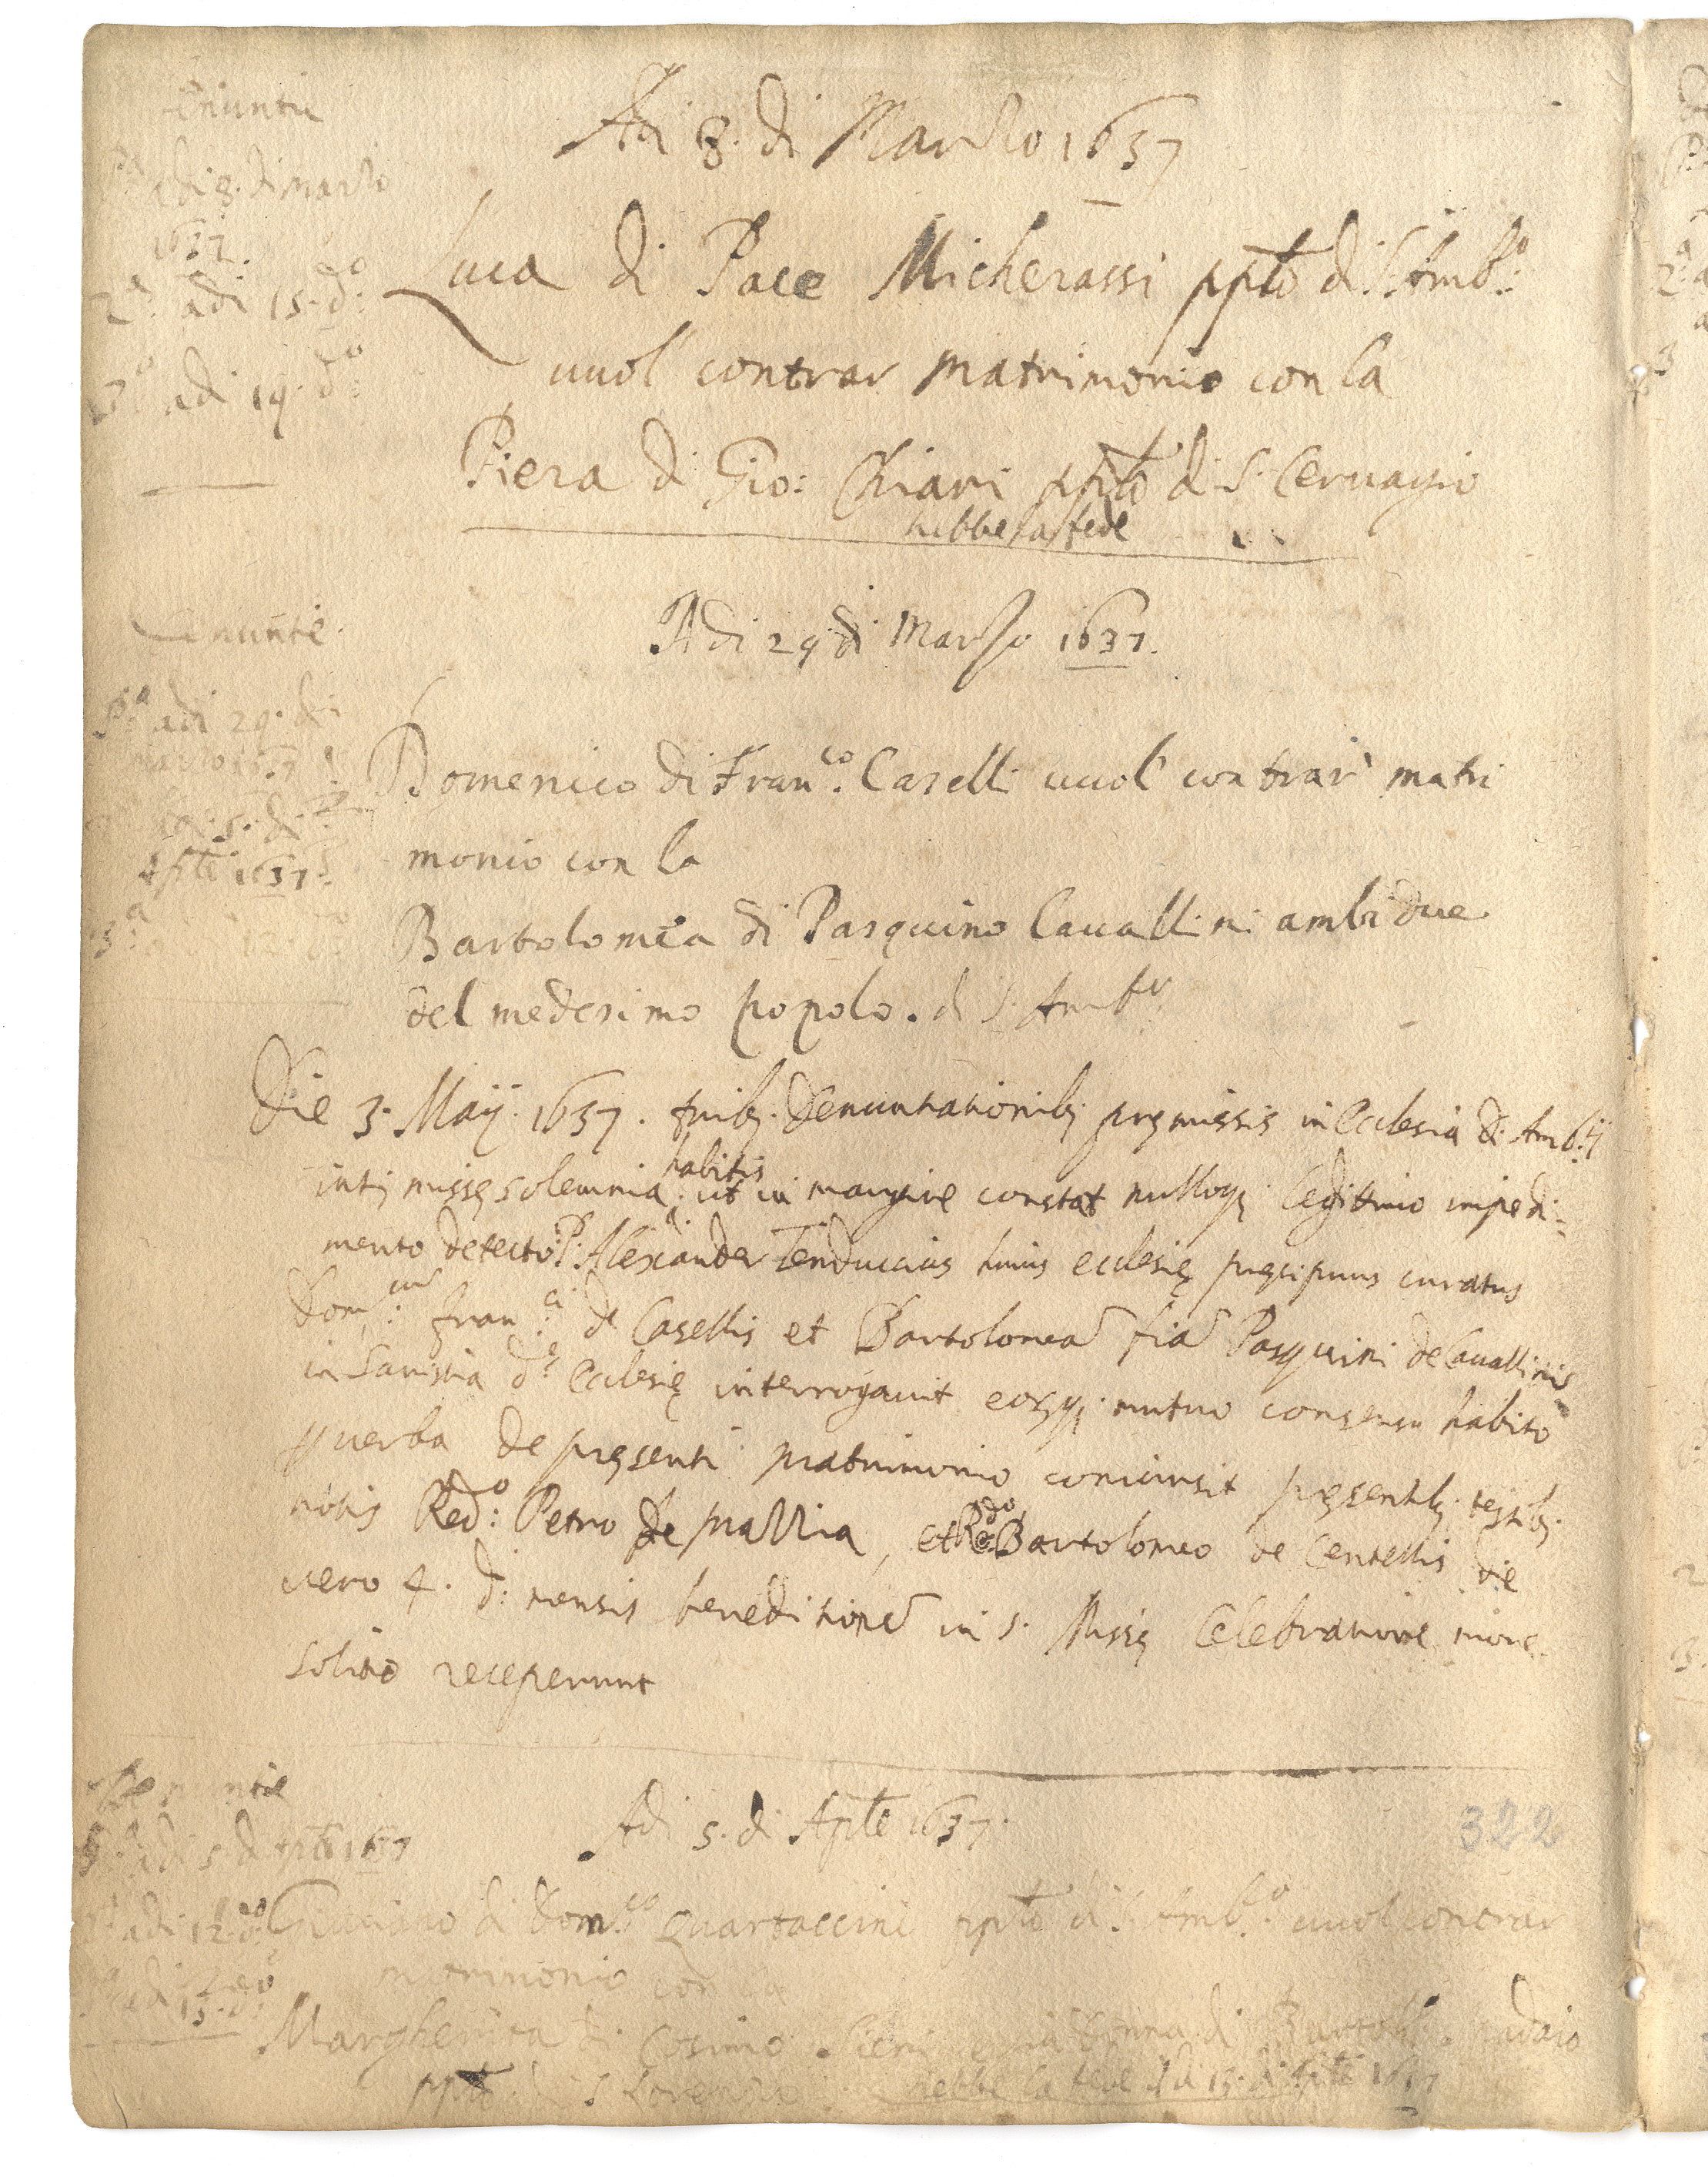 Denuntie
Adi 8. di Marzo 1637
P.a adi 8. di marzo
1637.
2.a adi 15. d.o
3.a adi 19. d.o
Luca di Pace Micherassi pplō di S. Amb.o
uuol contrar matrimonio con la
Piera di Gio: Chiari pplō di S. Ceruagio
hebbe la fede
Adi 29 di Marzo 1637.
Denuntie.
P.a adi 29. di
marzo 1637
adi 5. di
Aplē 1637.
3.a
Domenico di Fran.co Caselli uuol contrar matri
monio con la
Bartolomea di Pasquino Cauallini ambidue
del medesimo popolo. di S. Amb.o
Die 3. Maij. 1637. tribȝ. denuntationibȝ pręmissis in Ecclesia S. Amb.ij
intȝ missę solemnia habitis ut in margine constat nulloqȝ legittimo impedi=
mento detecto P. Alexander Tenduccius huius ecclesię pręcipuus curatus
Dom.cum Fran.ci de Casellis et Bartolomeā fiā Pasquini de Cauallinis
in Sacristia d.ę Ecclesię interrogauit eosqȝ. mutuo consensu habito
ꝑ uerba de pręsenti matrimonio coniunsit pręsentibȝ. testibȝ.
notis Red.o Petro de mallia, et R.do Bartolomeo de Centellis die
uero 4. d. mensis beneditionē in S. Missę Celebratione more
solito receperunt
Denuntie
Adi 5. di Aplē 1637.
322
P.a adi 5. di Aplē 1637
adi 12. d.o
adi 13. d.o
Giuliano di Dom.co Quartaccini pplō di S. Amb.o uuol contrar
matrimonio con la
Margherita di Cosimo
pplō di S. Lorenzo hebbe la fede adi 13. di Aplē 1637